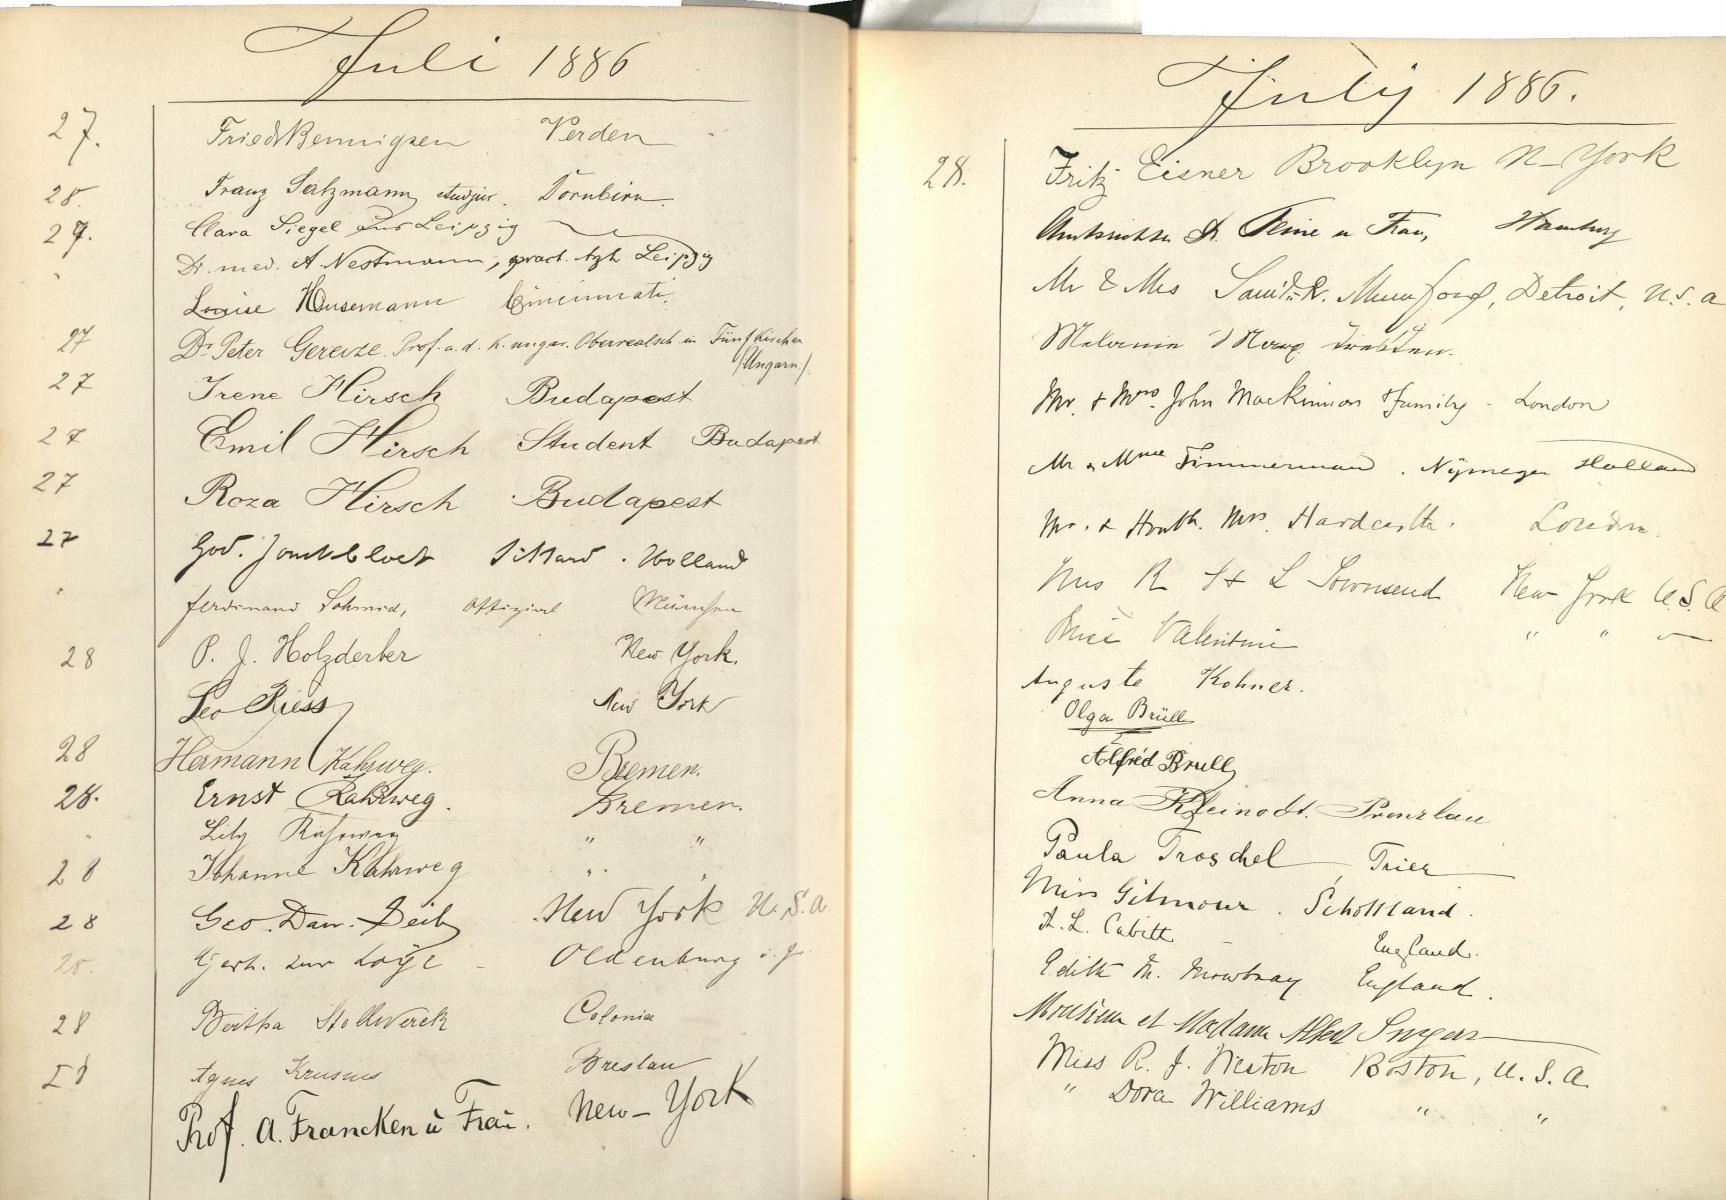 Juli 1886
27. Fried Bennigsen Verden
28. Franz Salzmann stud jur. Dornbirn
27. Clara Siegel aus Leipzig
" Dr. med. A. Nestmann, pract. Azt Leipzig
Louise Husemann Cincinnati.
27 Dr Peter Gerecze Prof. a. d. K. ungar. Oberrealsch. in Fünfkirchen
/Ungarn/.
27 Irene Hirsch Budapest
27 Emil Hirsch Student Budapest
27 Roza Hirsch Budapest
27 God. Jonckbloet Sittard. Holland
" Ferdinand Schmid, Offizial München
28 P. J. Holzderber New York.
Leo Riess New York
28 Hermann Kahrweg. Bremen.
28. Ernst Kahrweg. Bremen.
" Lily Kahrweg " "
28 Johanne Kahrweg " "
28 Geo. Dan. New York U. S. A.
28. Gerh. zur Loye - Oldenburg i. Gr.
28 Bertha Stollwerck Colonia
28 Agnes Breslau
Prof. A. Francken u Frau. New-York
July 1886.
28. Fritz Eisner Brooklyn N-York
Amtsrichter Dr. u Frau, Hamburg
Mr & Mrs Mumford, Detroit, U. S. A
Melanie Dresden.
Mr. & Mrs. John Mackinnon & family - London
Mr & Mme Timmerman. Nijmegen Holland
Mr. & Honble. Mrs. Hardcastle. London.
R L Townsend New York U. S. A
Miss Valentine " " "
Auguste Kohner.
Olga Brüll
Alfred Brüll
Anna Kleinodt. Prenzlau
Paula Troschel, Trier
Miss Gilmour. Schottland.
A. L. Cubitt England.
Edith M. Mowbray England.
Monsieur et Madame Albert
Miss R. J. Weston Boston, U. S. A.
" Dora Williams " "